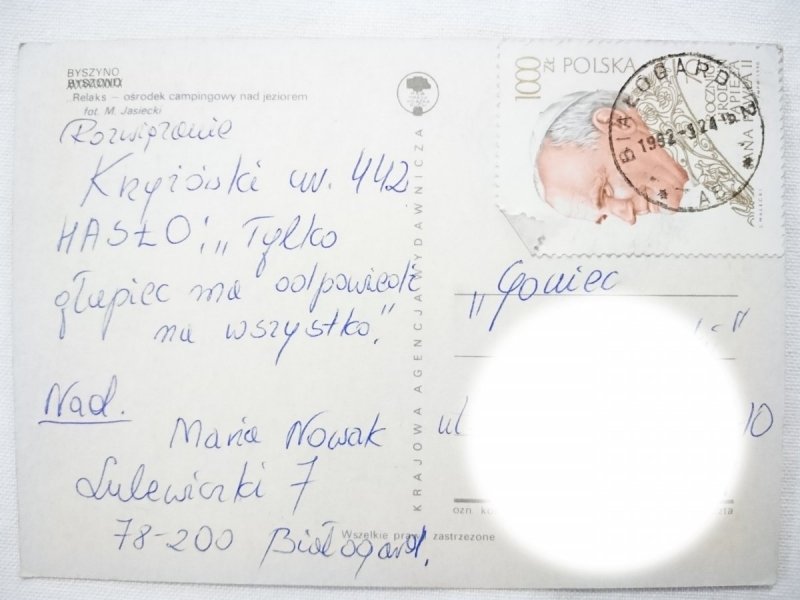 BYSZYNO
BYSZONO
„Relaks – ośrodek campingowy nad jeziorem
fot. M. Jasiecki
Rozwiązanie
Krzyżówski nr. 442
HASŁO: „Tylko
głupiec ma odpowiedź
na wszystko."
Nad.
Maria Nowak
Lulewiczki 7
78-200 Białogard.
KRAJOWA AGENCJA WYDAWNICZA
Wszelkie prawa zastrzeżone
1000 ZŁ POLSKA
PAPIEŻA
JANA PAWŁA II
BIAŁOGARD 2
1992-3.24.15
AE
„Goniec
"
ul 10
ozn. ko
zta